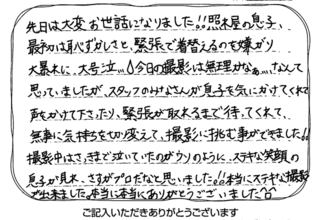 先日は大変お世話になりました!!照れ屋の息子、
最初は恥ずかしさと、緊張で着替えるのを嫌がり
大暴れに、大号泣…今日の撮影は無理かなぁ…なんて
思っていましたが、スタッフのみなさんが息子を気にかけてくれて
声をかけて下さったり、緊張が取れるまで待ってくれて、
無事に気持ちを切り変えて、撮影に挑む事ができました!!
撮影中はさっきまで泣いていたのがウソのように、ステキな笑顔の
息子が見れ、さすがプロだなと思いました。!!本当にステキな撮影
が出来ました。本当に本当にありがとうございました
ご記入いただきありがとうございます